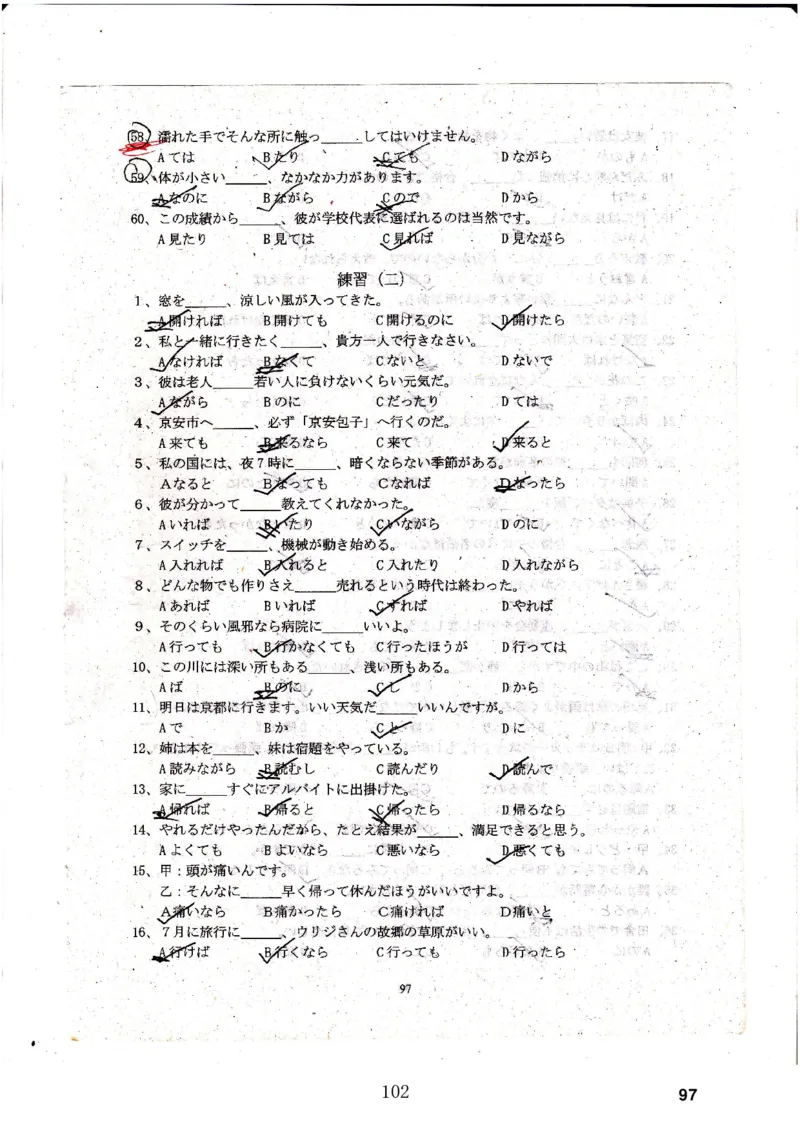 58、濡れた手でそんな所に触っ＿＿＿してはいけません。
Aては Bたり Cても Dながら
59、体が小さい＿＿＿、なかなか力があります。
Aなのに Bながら Cので Dから
60、この成績から＿＿＿、彼が学校代表に選ばれるのは当然です。
A見たり B見ては C見れば D見ながら
練習（二）
1、窓を＿＿＿、涼しい風が入ってきた。
A開ければ B開けても C開けるのに D開けたら
2、私と一緒に行きたく＿＿＿、貴方一人で行きなさい。
Aなければ Bなくて Cないと Dないで
3、彼は老人＿＿＿若い人に負けないくらい元気だ。
Aながら Bのに Cだったり Dては
4、京安市へ＿＿＿、必ず「京安包子」へ行くのだ。
A来ても B来るなら C来て D来ると
5、私の国には、夜7時に＿＿＿、暗くならない季節がある。
Aなると Bなっても Cなれば Dなったら
6、彼が分かって＿＿＿教えてくれなかった。
Aいれば Bいたり Cいながら Dのに
7、スイッチを＿＿＿、機械が動き始める。
A入れれば B入れると C入れたり D入れながら
8、どんな物でも作りさえ＿＿＿売れるという時代は終わった。
Aあれば Bいれば Cすれば Dやれば
9、そのくらい風邪なら病院に＿＿＿いいよ。
A行っても B行かなくても C行ったほうが D行っては
10、この川には深い所もある＿＿＿、浅い所もある。
Aば Bのに Cし Dから
11、明日は京都に行きます。いい天気だ＿＿＿いいんですが。
Aで Bか Cと Dに
12、姉は本を＿＿＿、妹は宿題をやっている。
A読みながら B読むし C読んだり D読んで
13、家に＿＿＿すぐにアルバイトに出掛けた。
A帰れば B帰ると C帰ったら D帰るなら
14、やれるだけやったんだから、たとえ結果が＿＿＿、満足できると思う。
Aよくても Bよいなら C悪いなら D悪くても
15、甲：頭が痛いんです。
乙：そんなに＿＿＿早く帰って休んだほうがいいですよ。
A痛いなら B痛かったら C痛ければ D痛いと
16、7月に旅行に＿＿＿、ウリジさんの故郷の草原がいい。
A行けば B行くなら C行っても D行ったら
97
102
97